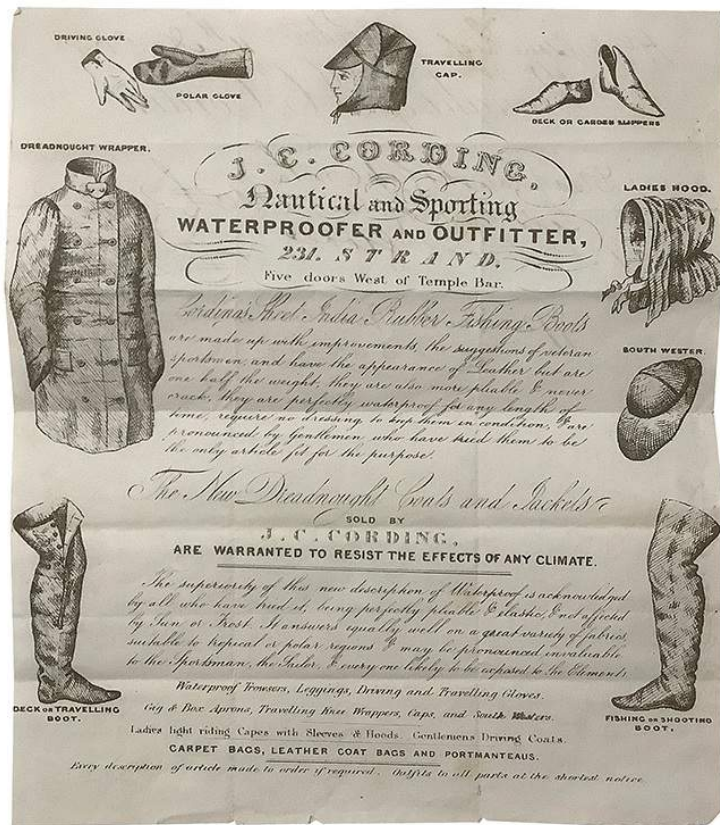 DRIVING GLOVE
POLAR GLOVE
TRAVELLING
CAP.
DECK OR GARDEN SLIPPERS
DREADNOUGHT WRAPPER.
J. C. CORDING,
Nautical and Sporting
WATERPROOFER AND OUTFITTER,
231. STRAND.
Five doors West of Temple Bar.
LADIES HOOD.
SOUTH WESTER.
Cording's Sheet India Rubber Fishing Boots
are made up with improvements, the suggestions of veteran
sportsmen, and have the appearance of Leather but are
one half the weight, they are also more pliable & never
crack, they are perfectly waterproof for any length of
time, require no dressing to keep them in condition, & are
pronounced by Gentlemen who have tried them to be
the only article fit for the purpose.
The New Dreadnought Coats and Jackets
SOLD BY
J. C. CORDING,
ARE WARRANTED TO RESIST THE EFFECTS OF ANY CLIMATE.
The superiority of this new description of Waterproof is acknowledged
by all who have tried it, being perfectly pliable & elastic, & not affected
by Sun or Frost. It answers equally well on a great variety of fabrics,
suitable to tropical or polar regions & may be pronounced invaluable
to the Sportsman, the Sailor, & every one likely to be exposed to the Elements
Waterproof Trowsers, Leggings, Driving and Travelling Gloves.
Gig & Box Aprons, Travelling Knee Wrappers, Caps, and South Westers.
Ladies light riding Capes with Sleeves & Hoods. Gentlemens Driving Coats.
CARPET BAGS, LEATHER COAT BAGS AND PORTMANTEAUS.
Every description of article made to order if required. Outfits to all parts at the shortest notice.
DECK OR TRAVELLING
BOOT.
FISHING OR SHOOTING
BOOT.